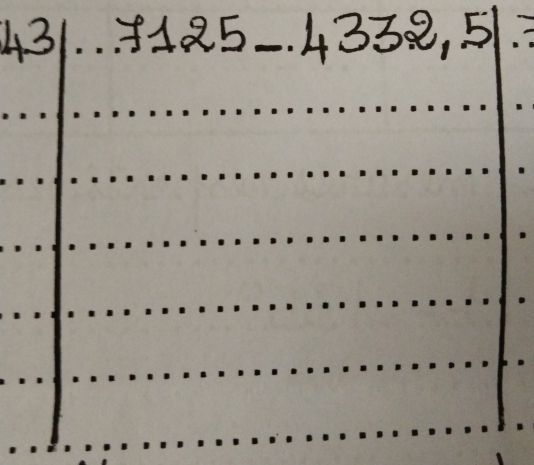 43 ...7125-.4332,5